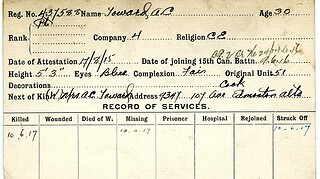 Reg. No. 437535 Name Toward, A.C. Age 30
Rank Pte Company 4 Religion CE
Date of Attestation 17/2/15 Date of joining 15th Can. Battn. 9.6.16
Height 5' 3" Eyes Blue Complexion Fair Original Unit 51
Decorations Cook
Next of Kin Mrs A.C. Toward Address 9347 107 Ave Edmonton Alta
RECORD OF SERVICES.
Rejoined Wounded Died of W. Missing Prisoner Hospital Records Struck Off
10.6.17 10.6.17